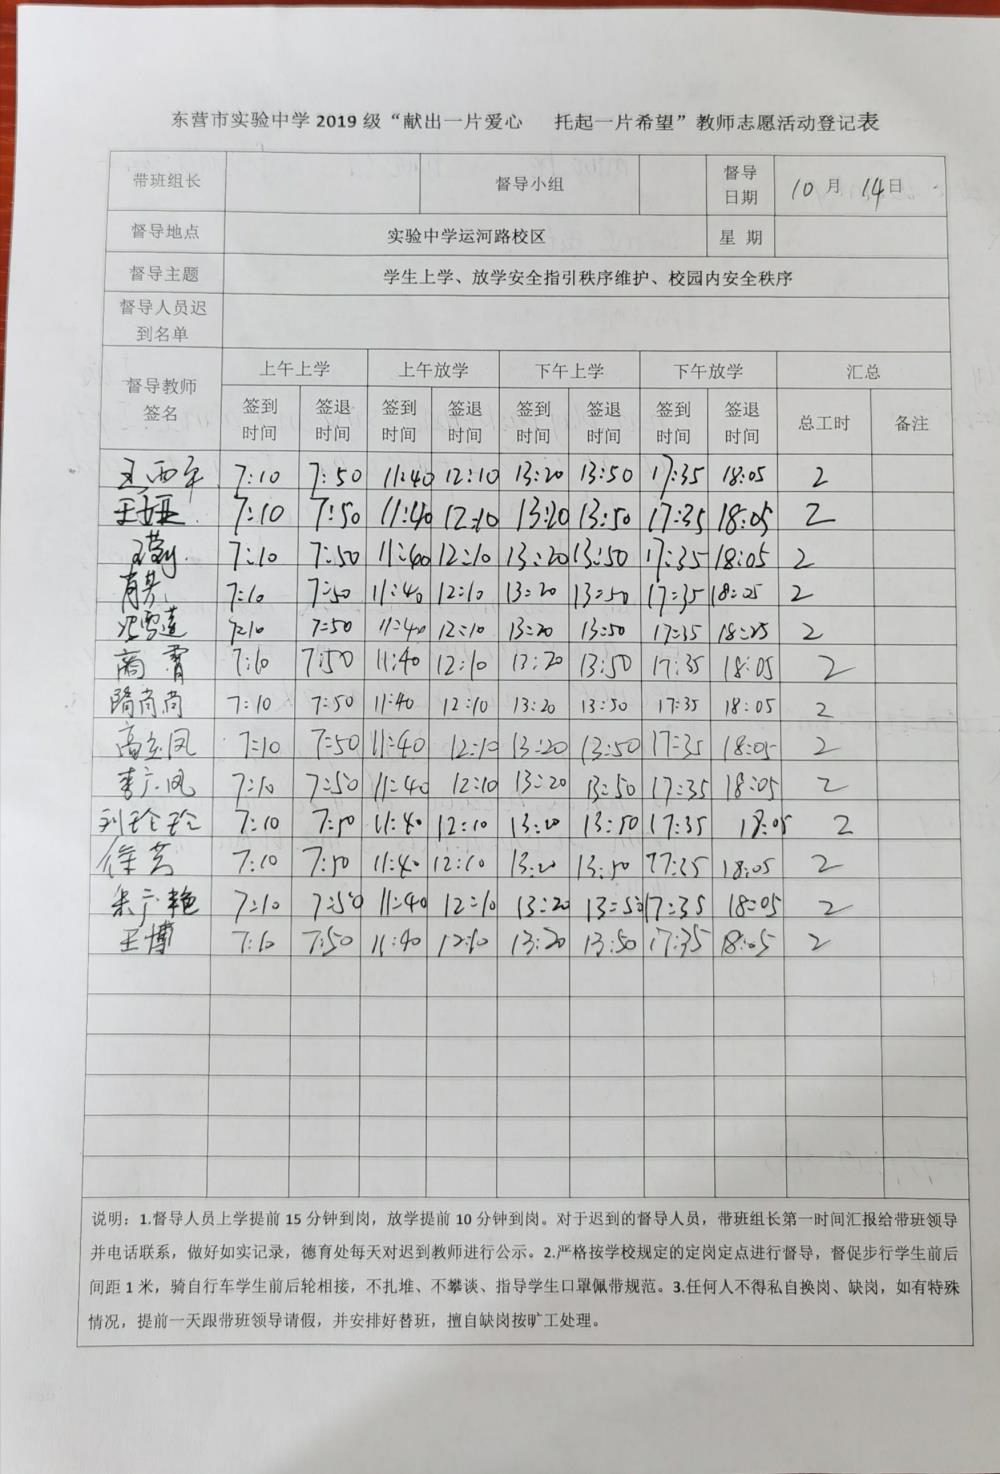 东营市实验中学 2019 级“献出一片爱心 托起一片希望”教师志愿活动登记表
带班组长 督导小组 督导日期 10月 14日
督导地点 实验中学运河路校区 星 期
督导主题 学生上学、放学安全指引秩序维护、校园内安全秩序
督导人员迟到名单
督导教师签名 上午上学 上午放学 下午上学 下午放学 汇总
签到时间 签退时间 签到时间 签退时间 签到时间 签退时间 签到时间 签退时间 总工时 备注
王西平 7:10 7:50 11:40 12:10 13:20 13:50 17:35 18:05 2
王娅 7:10 7:50 11:40 12:10 13:20 13:50 17:35 18:05 2
7:10 7:50 11:40 12:10 13:20 13:50 17:35 18:05 2
7:10 7:50 11:40 12:10 13:20 13:50 17:35 18:05 2
7:10 7:50 11:40 12:10 13:20 13:50 17:35 2
高霄 7:10 7:50 11:40 12:10 13:20 13:50 17:35 18:05 2
隋尚尚 7:10 7:50 11:40 12:10 13:20 13:50 17:35 18:05 2
高立凤 7:10 7:50 11:40 12:10 13:20 13:50 17:35 18:05 2
李广凤 7:10 7:50 11:40 12:10 13:20 13:50 17:35 18:05 2
刘珍珍 7:10 7:50 11:40 12:10 13:20 13:50 17:35 18:05 2
徐芸 7:10 7:50 11:40 12:10 13:20 13:50 17:35 18:05 2
朱广艳 7:10 7:50 11:40 12:10 13:20 13:50 17:35 18:05 2
王博 7:10 7:50 11:40 12:10 13:20 13:50 17:35 18:05 2
说明：1.督导人员上学提前 15 分钟到岗，放学提前 10 分钟到岗。对于迟到的督导人员，带班组长第一时间汇报给带班领导
并电话联系，做好如实记录，德育处每天对迟到教师进行公示。2.严格按学校规定的定岗定点进行督导，督促步行学生前后
间距 1 米，骑自行车学生前后轮相接，不扎堆、不攀谈、指导学生口罩佩带规范。3.任何人不得私自换岗、缺岗，如有特殊
情况，提前一天跟带班领导请假，并安排好替班，擅自缺岗按旷工处理。